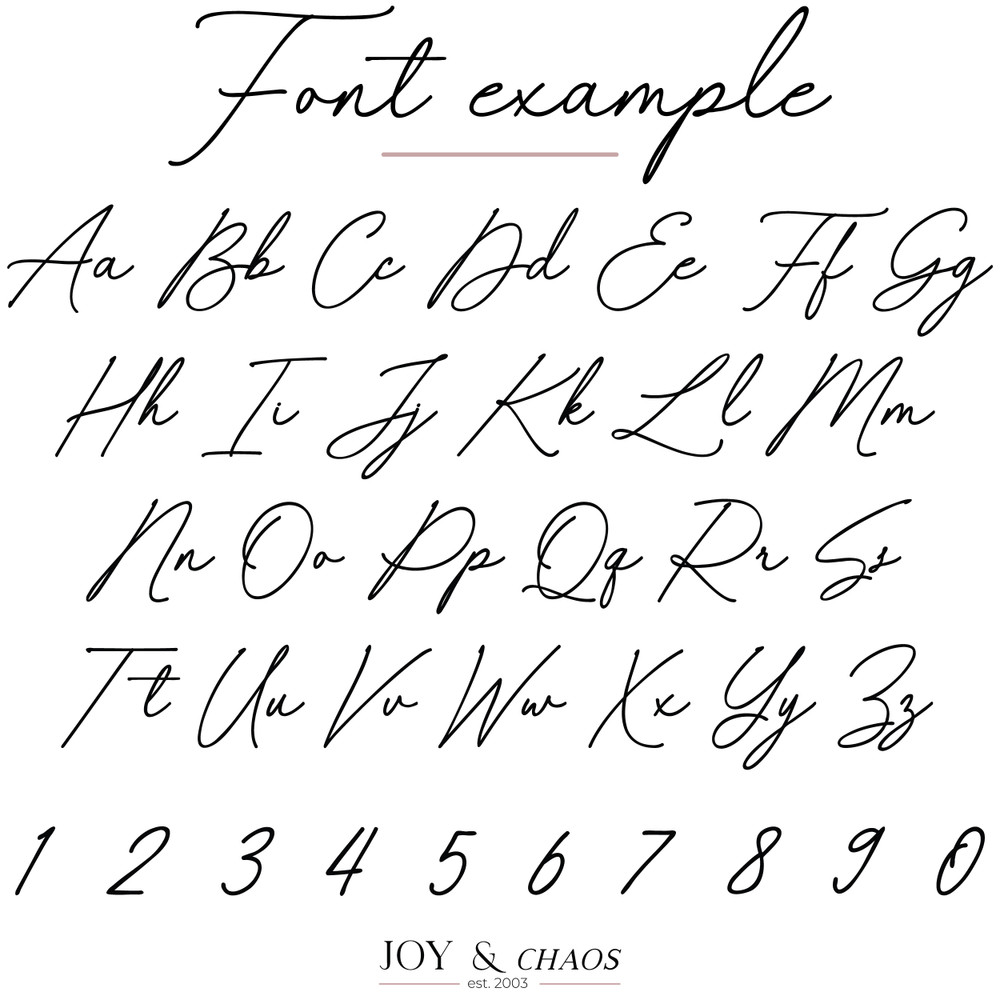 Font example
Aa Bb Cc Dd Ee Ff Gg
Hh Ii Jj Kk Ll Mm
Nn Oo Pp Qq Rr Ss
Tt Uu Vv Ww Xx Yy Zz
1 2 3 4 5 6 7 8 9 0
JOY & CHAOS
est. 2003